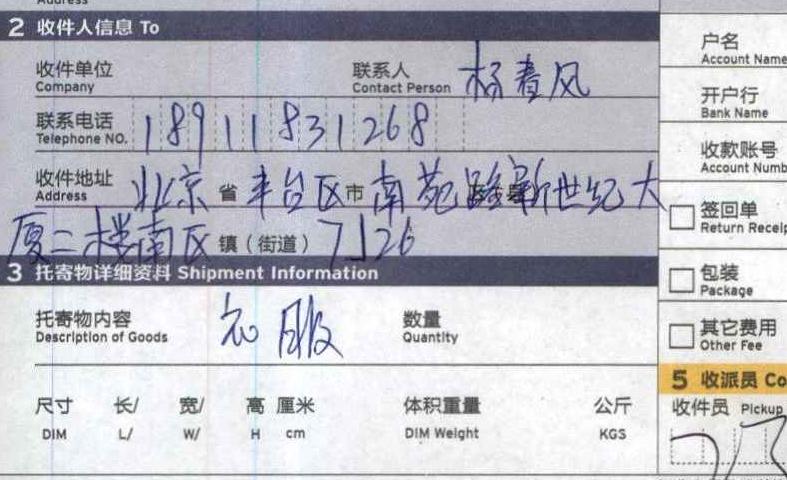 Address
2 收件人信息 To
收件单位
Company
联系人 杨春风
Contact Person
联系电话 18911831268
Telephone NO.
收件地址 北京 省 丰台区 市 南苑路新世纪大
Address
厦二楼南区 镇（街道） 7J26
3 托寄物详细资料 Shipment Information
托寄物内容 衣服
Description of Goods
数量
Quantity
尺寸 长/ 宽/ 高 厘米 体积重量 公斤
DIM L/ W/ H cm DIM Weight KGS
户名
Account Name
开户行
Bank Name
收款账号
Account Numb
签回单
Return Receip
包装
Package
其它费用
Other Fee
5 收派员 Co
收件员 Pickup